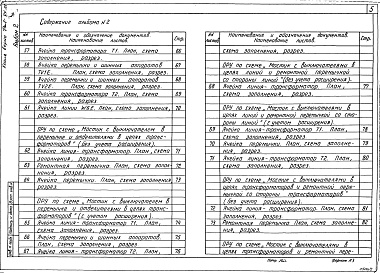 Содержание альбома №2
5
№№ листов
Наименование и обозначение документов. Наименование листов
Стр.
57 Ячейка трансформатора Т1. План, схема заполнения, разрез. 67
58 Ячейка перемычки и шинных аппаратов TV1E. План, схема заполнения, разрез. 68
59 Ячейка перемычки и шинных аппаратов TV2E. План, схема заполнения, разрез. 69
60 Ячейка трансформатора Т2. План, схема заполнения, разрез. 69
61 Ячейка линии W3E. План, схема заполнения, разрез. 70
ОРУ по схеме „Мостик с выключателем в
перемычке и отделителями в цепях транс-
форматоров" (без учета расширения).
62 Ячейка линия-трансформатор Т1. План, схема заполнения, разрез. 71
63 Ремонтная перемычка. План, схема заполнения, разрез. 72
64 Ячейка перемычки. План, схема заполнения, разрез. 73
ОРУ по схеме „Мостик с выключателем в
перемычке и отделителями в цепях транс-
форматоров" (с учетом расширения).
65 Ячейка линия-трансформатор Т1. План, схема заполнения, разрез. 74
66 Ячейка перемычки и шинных аппаратов. План, схема заполнения, разрез. 75
67 Ячейка линия-трансформатор Т2. План, 76
№№ листов
Наименование и обозначение документов. Наименование листов
Стр.
схема заполнения, разрез.
ОРУ по схеме „Мостик с выключателями в
цепях линий и ремонтной перемычкой
со стороны линий" (без учета расширения).
68 Ячейка линия-трансформатор. План, схема заполнения, разрез. 77
ОРУ по схеме „Мостик с выключателями в
цепях линий и ремонтной перемычкой со сто-
роны линий" (с учетом расширения).
69 Ячейка линия-трансформатор Т1. План, схема заполнения, разрез. 78
70 Ячейка перемычки. План, схема заполнения, разрез. 79
71 Ячейка линия-трансформатор Т2. План, схема заполнения, разрез. 80
ОРУ по схеме „Мостик с выключателями в
цепях трансформаторов и ремонтной перемыч-
кой со стороны трансформаторов"
(без учета расширения).
72 Ячейка линия-трансформатор. План, схема заполнения, разрез. 81
73 Ремонтная перемычка. План, схема заполнения, разрез. 82
ОРУ по схеме „Мостик с выключателями в
цепях трансформаторов и ремонтной перемыч-